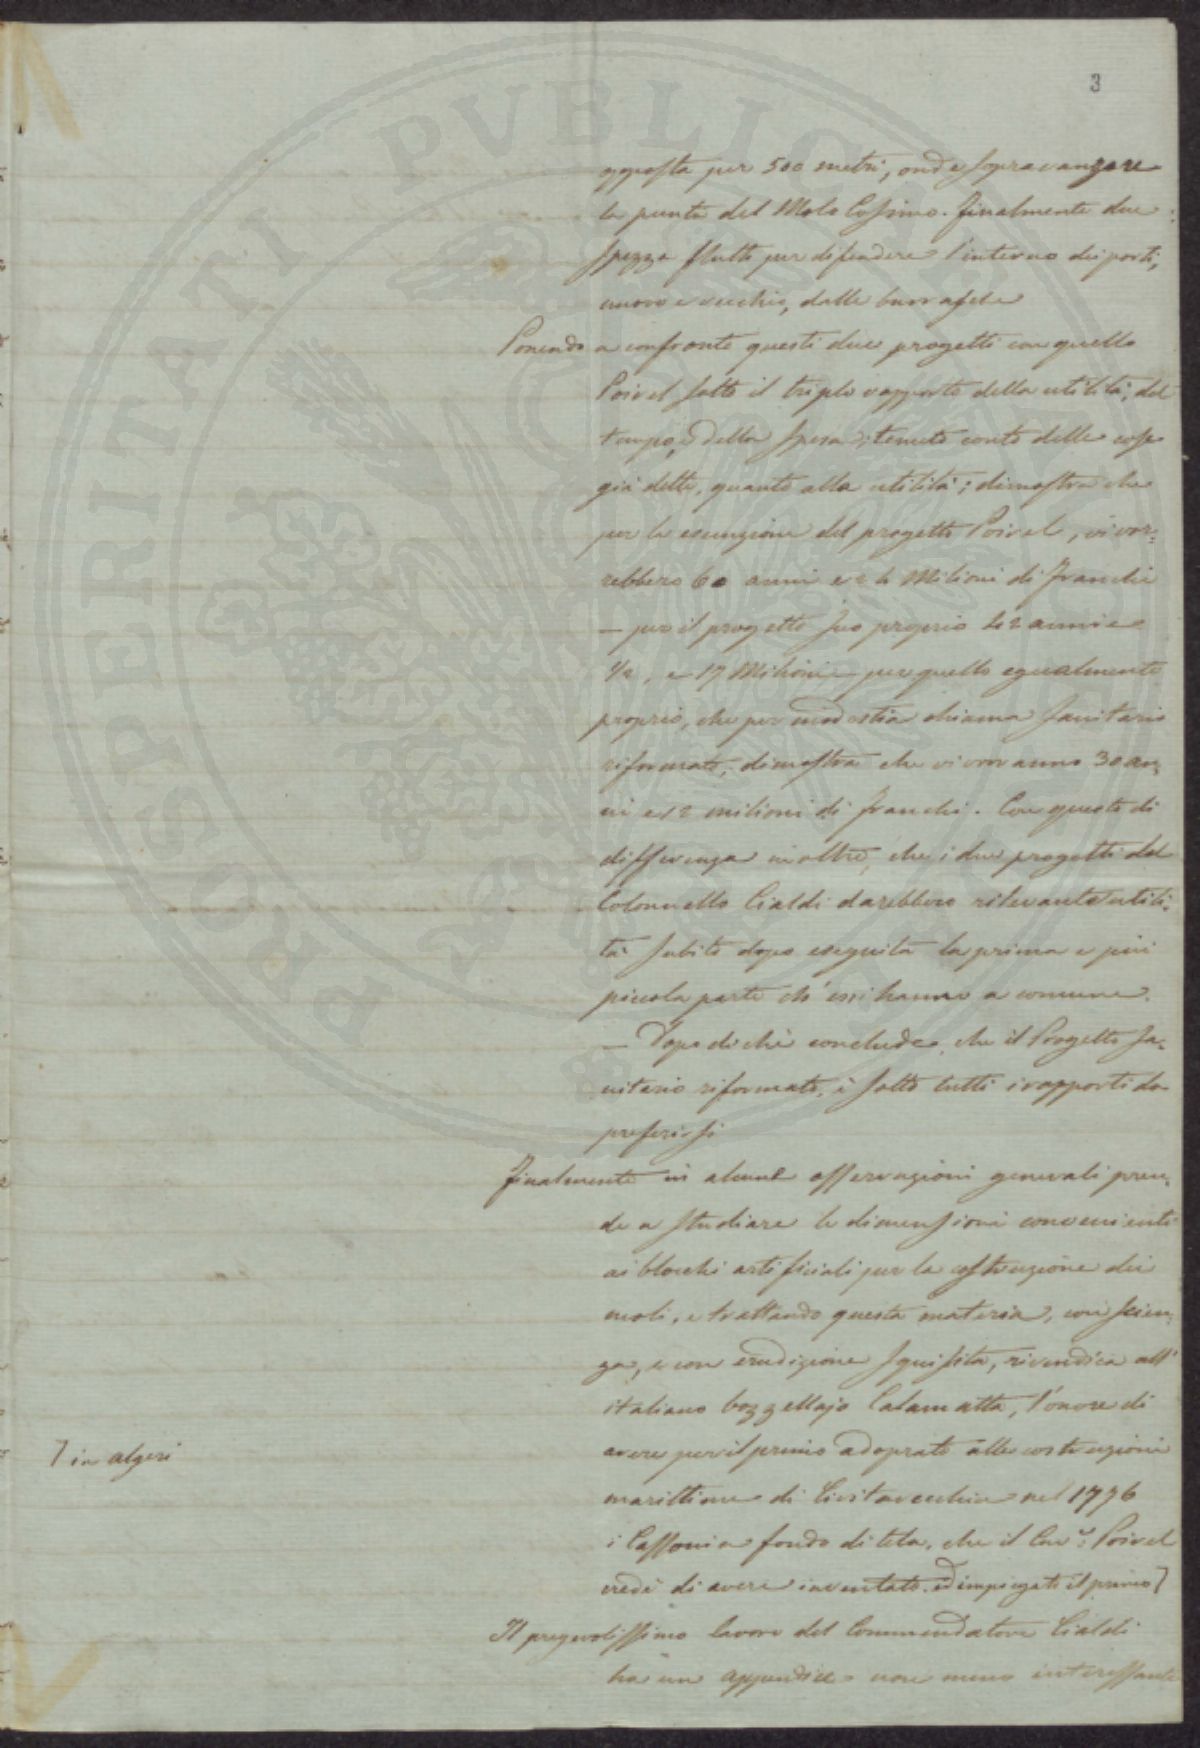 3
opposta per 500 metri, onde sopravanzare
la punta del Molo Cosimo. Finalmente due
spezza flutti per difendere l'interno dei porti,
nuovo e vecchio, dalle burrasche
Ponendo a confronto questi due progetti con quello
Poirel sotto il triplo rapporto della utilità, del
tempo, e della spesa; tenuto conto delle cose
già dette, quanto alla utilità; dimostra che
per la esecuzione del progetto Poirel, vi vor-
rebbero 60 anni e 24 Milioni di franchi
— per il progetto suo proprio 42 anni e
1/2, e 17 Milioni — per quello egualmente
proprio, che per modestia chiama Sanitario
riformato, dimostra che vi vorranno 30 an-
ni e 12 milioni di franchi. Con questo di
differenza inoltre, che i due progetti del
Colonnello Cialdi darebbero rilevante utili-
tà subito dopo eseguita la prima e più
piccola parte ch'essi hanno a comune.
— Dopo di chè conclude, che il Progetto Sa-
nitario riformato, è sotto tutti i rapporti da
preferirsi
Finalmente in alcune osservazioni generali pren-
de a studiare le dimensioni convenienti
ai blocchi artificiali per la costruzione dei
moli, e trattando questa materia, con scien-
za, e con erudizione squisita, rivendica all'
italiano bozzellajo Calamatta, l'onore di
avere per il primo adoprato alle costruzioni
marittime di Civitavecchia nel 1776
i Cassoni a fondo di tela, che il Cav.e Poirel
credè di avere inventato ed impiegato il primo ]
] in algeri
Il pregevolissimo lavoro del Commendatore Cialdi
ha un appendice non meno interessante
PROSPERITATI PVBLICAE